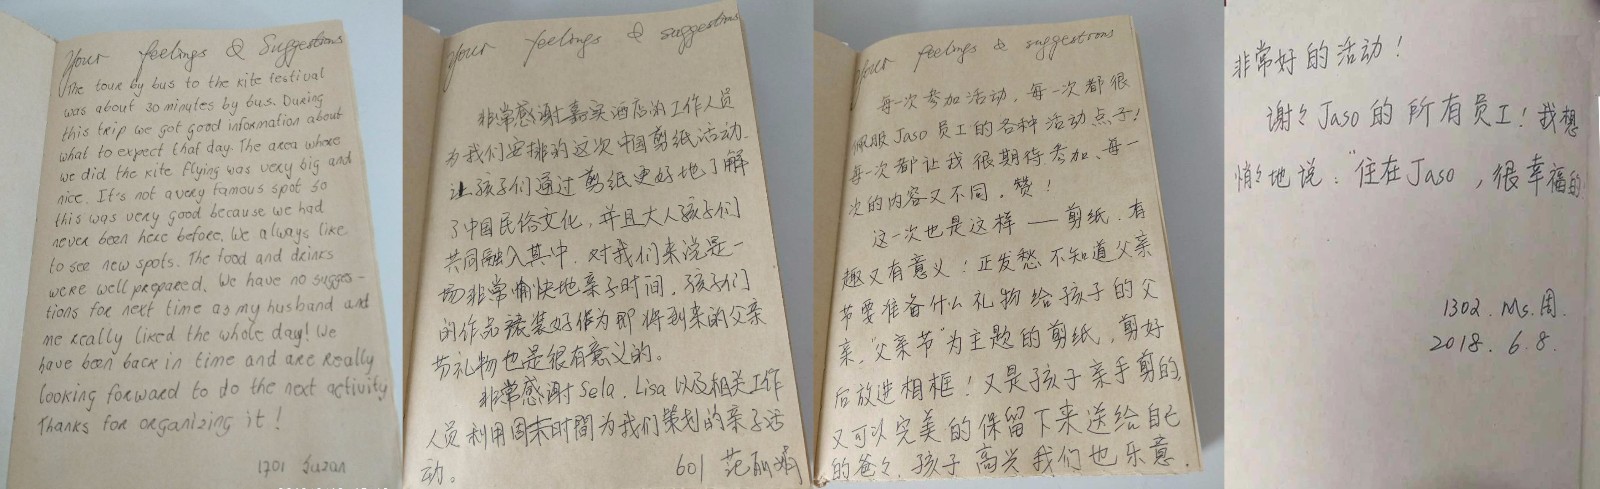 Your feelings & Suggestions
The tour by bus to the kite festival
was about 30 minutes by bus. During
this trip we got good information about
what to expect that day. The area where
we did the kite flying was very big and
nice. It's not a very famous spot so
this was very good because we had
never been here before. We always like
to see new spots. The food and drinks
were well prepared. We have no sugges-
tions for next time as my husband and
me really liked the whole day! We
have been back in time and are really
looking forward to do the next activity
Thanks for organizing it!
1701 Suzan
Your feelings & suggestions
非常感谢嘉实酒店的工作人员
为我们安排的这次中国剪纸活动.
让孩子们通过剪纸更好地了解
了中国民俗文化, 并且大人孩子们
共同融入其中. 对我们来说是一
场非常愉快地亲子时间, 孩子们
的作品裱装好作为即将到来的父亲
节礼物也是很有意义的。
非常感谢 Sela. Lisa 以及相关工作
人员利用周末时間为我们策划的亲子活
动。
601 范丽娟
Your feelings & suggestions
每一次参加活动, 每一次都很
佩服 Jaso 员工的各种活动点子!
每一次都让我很期待参加、每一
次的内容又不同. 赞!
这一次也是这样 — 剪纸. 有
趣又有意义! 正发愁不知道父亲
节要准备什么礼物给孩子的父
亲. “父亲节”为主题的剪纸, 剪好
后放进相框! 又是孩子亲手剪的,
又可以完美的保留下来送给自己
的爸々. 孩子高兴我们也乐意.
非常好的活动!
谢々 Jaso 的所有员工! 我想
悄々地说: “住在 Jaso, 很幸福的
1302. Ms.周.
2018. 6.8.